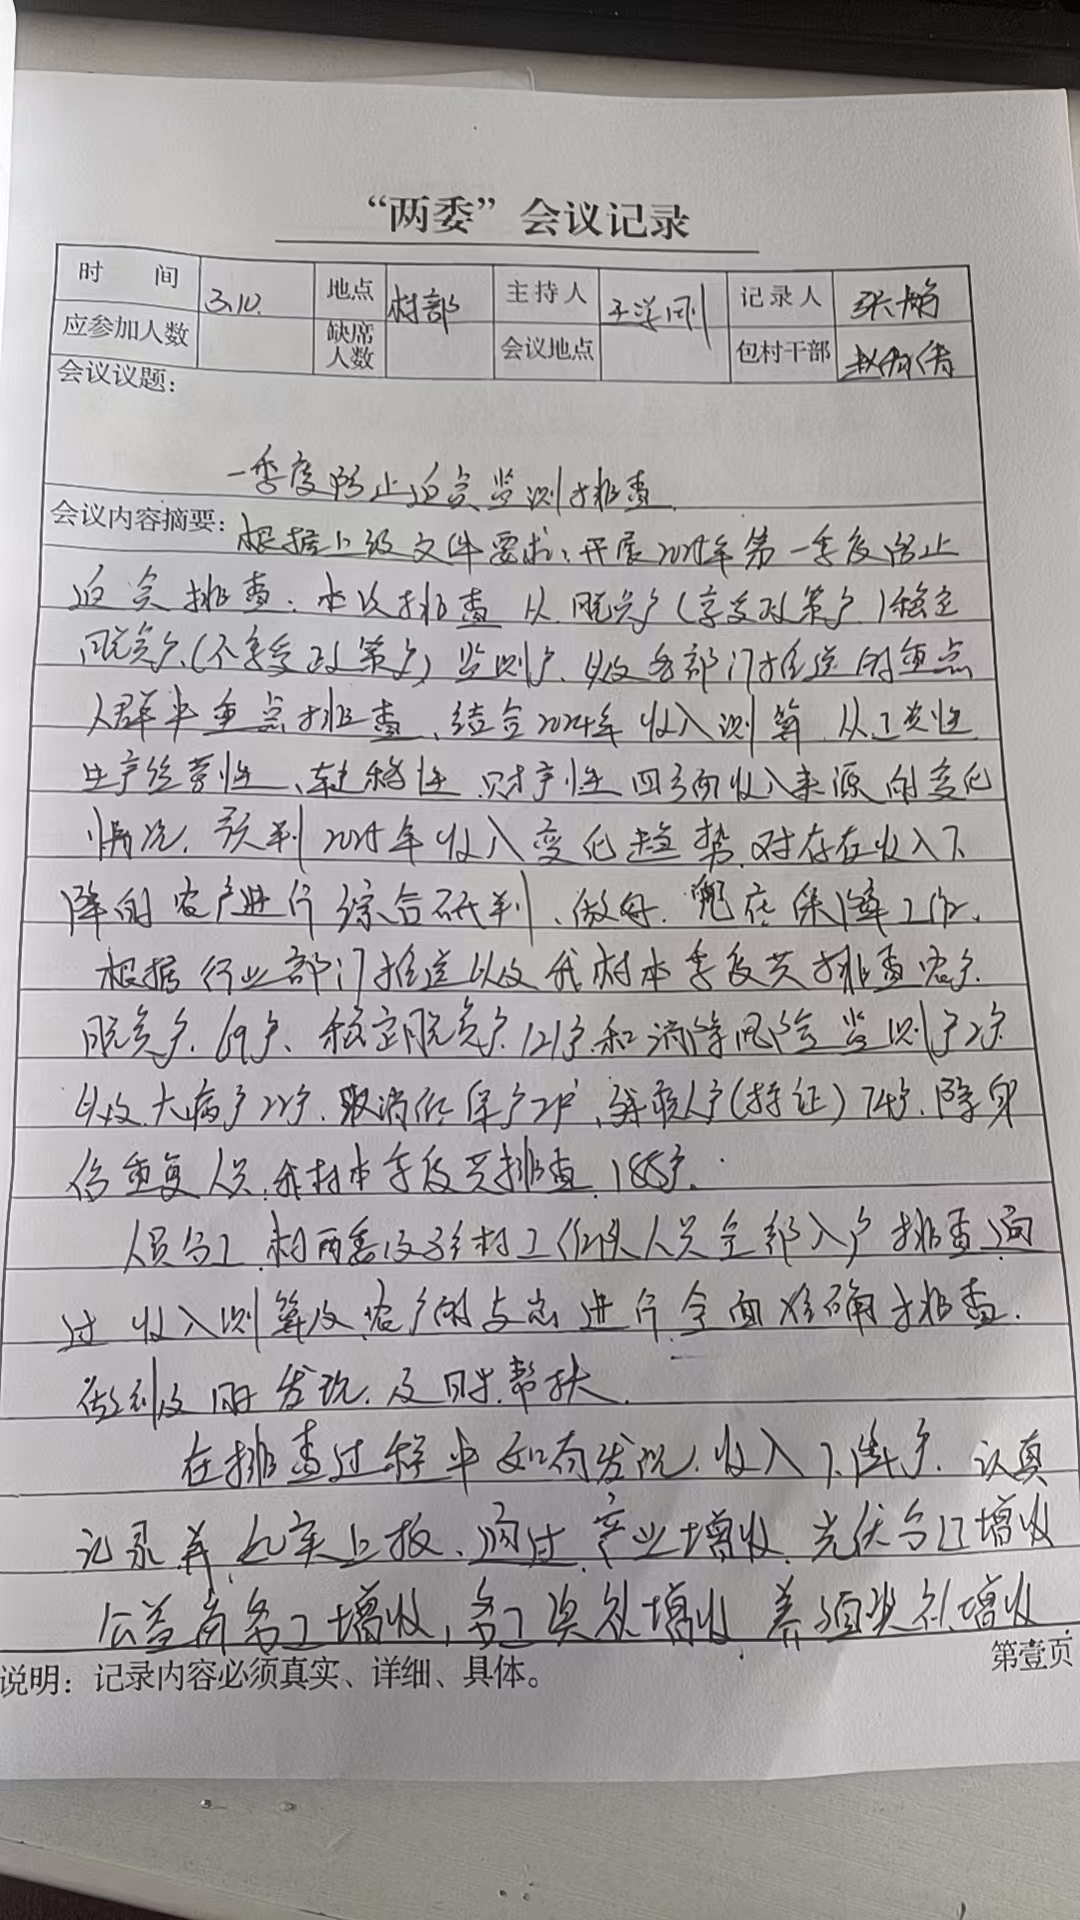 “两委”会议记录
时 间 3.10. 地点 村部 主持人 王学刚 记录人 张
应参加人数 缺席人数 会议地点 包村干部 赵
会议议题：
一季度防止返贫监测排查
会议内容摘要：根据上级文件要求：开展2025年第一季度防止
返贫排查，本次排查从脱贫户（享受政策户）稳定
脱贫户（不享受政策户）监测户、以及各部门推送的重点
人群中重点排查，结合2024年收入测算，从工资性
生产经营性、转移性、财产性四方面收入来源的变化
情况，预判2025年收入变化趋势，对存在收入下
降的农户进行综合研判、做好兜底保障工作。
根据行业部门推送以及我村本季度共排查农户
脱贫户69户、稳定脱贫户121户和消除风险监测户2户
以及大病户22户，取消低保户2户、残疾人户（持证）74户，除身
份重复人员，我村本季度共排查188户。
人员分工，村两委及驻村工作队人员全部入户排查，通
过收入测算及农户的 进行全面准确排查。
做到及时发现，及时帮扶
在排查过程中如有发现收入下降户，认真
记录并如实上报、通过产业增收，光伏分红增收
公益岗务工增收，务工奖补增收 养殖奖补增收
说明：记录内容必须真实、详细、具体。
第壹页